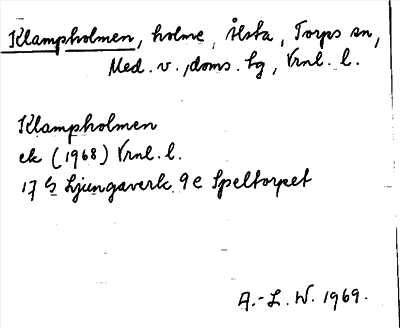 Klampholmen, holme, Ålsta, Torps sn,
Med. v., doms. hg, Vrnl. l.
Klampholmen
ek (1968) Vrnl. l.
17 G Ljungaverk 9 e Speltorpet
A.-L. W. 1969.